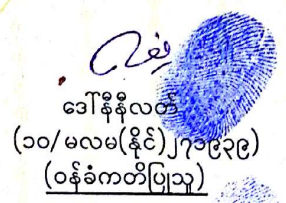 ဒေါ်နီနီလတ်
(၁၀/မလမ(နိုင်)၂၇၁၉၃၉)
(ဝန်ခံကတိပြုသူ)